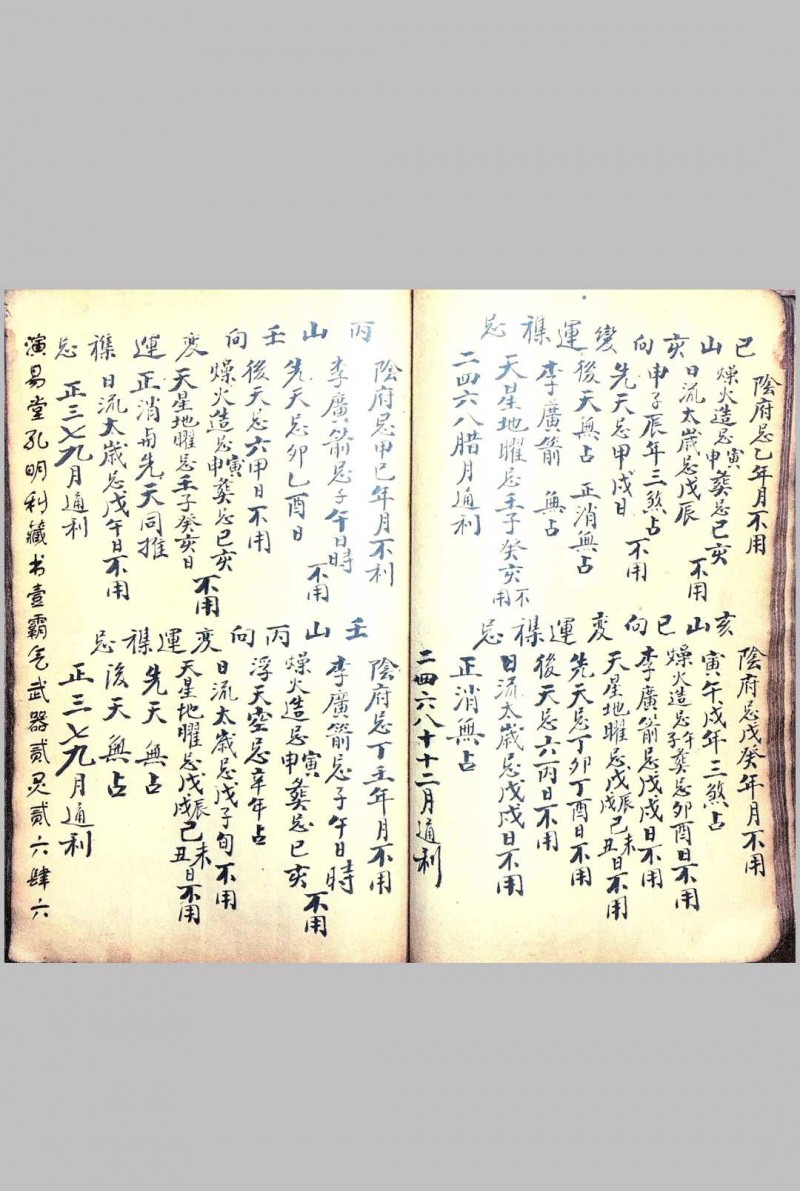 巳山亥向變運襍忌
陰府忌乙年月不用
燥火造忌寅申葬忌巳亥不用
日流太歲忌戊辰不用
申子辰年三煞占
先天忌甲戌日不用
後天無占 正消無占
李廣箭 無占
天星地曜忌壬子癸亥不用
二四六八腊月通利
亥山巳向変運襍忌
陰府忌戊癸年月不用
寅午戌年三煞占
燥火造忌子午葬忌卯酉日不用
李廣箭忌戊戌日不用
天星地曜忌戊辰戊戌己未己丑日不用
先天忌丁卯丁酉日不用
後天忌六丙日不用
日流太歲忌戊戌日不用
正消無占
二四六八十十二月通利
丙山壬向変運襍忌
陰府忌甲巳年月不利
李廣箭忌子午日時不用
先天忌卯乙酉日
後天忌六甲日不用
燥火造忌寅申葬忌巳亥不用
天星地曜忌壬子癸亥日
正消与先天同推
日流太歲忌戊午日不用
正三七九月通利
壬山丙向変運襍忌
陰府忌丁壬年月不用
李廣箭忌子午日時不用
燥火造忌寅申葬忌巳亥
浮天空忌辛年占
日流太歲忌戊子旬不用
天星地曜忌戊辰戌己未丑日不用
先天無占
後天無占
正三七九月通利
演易堂孔明利藏书壹霸气武器贰灵贰六肆六